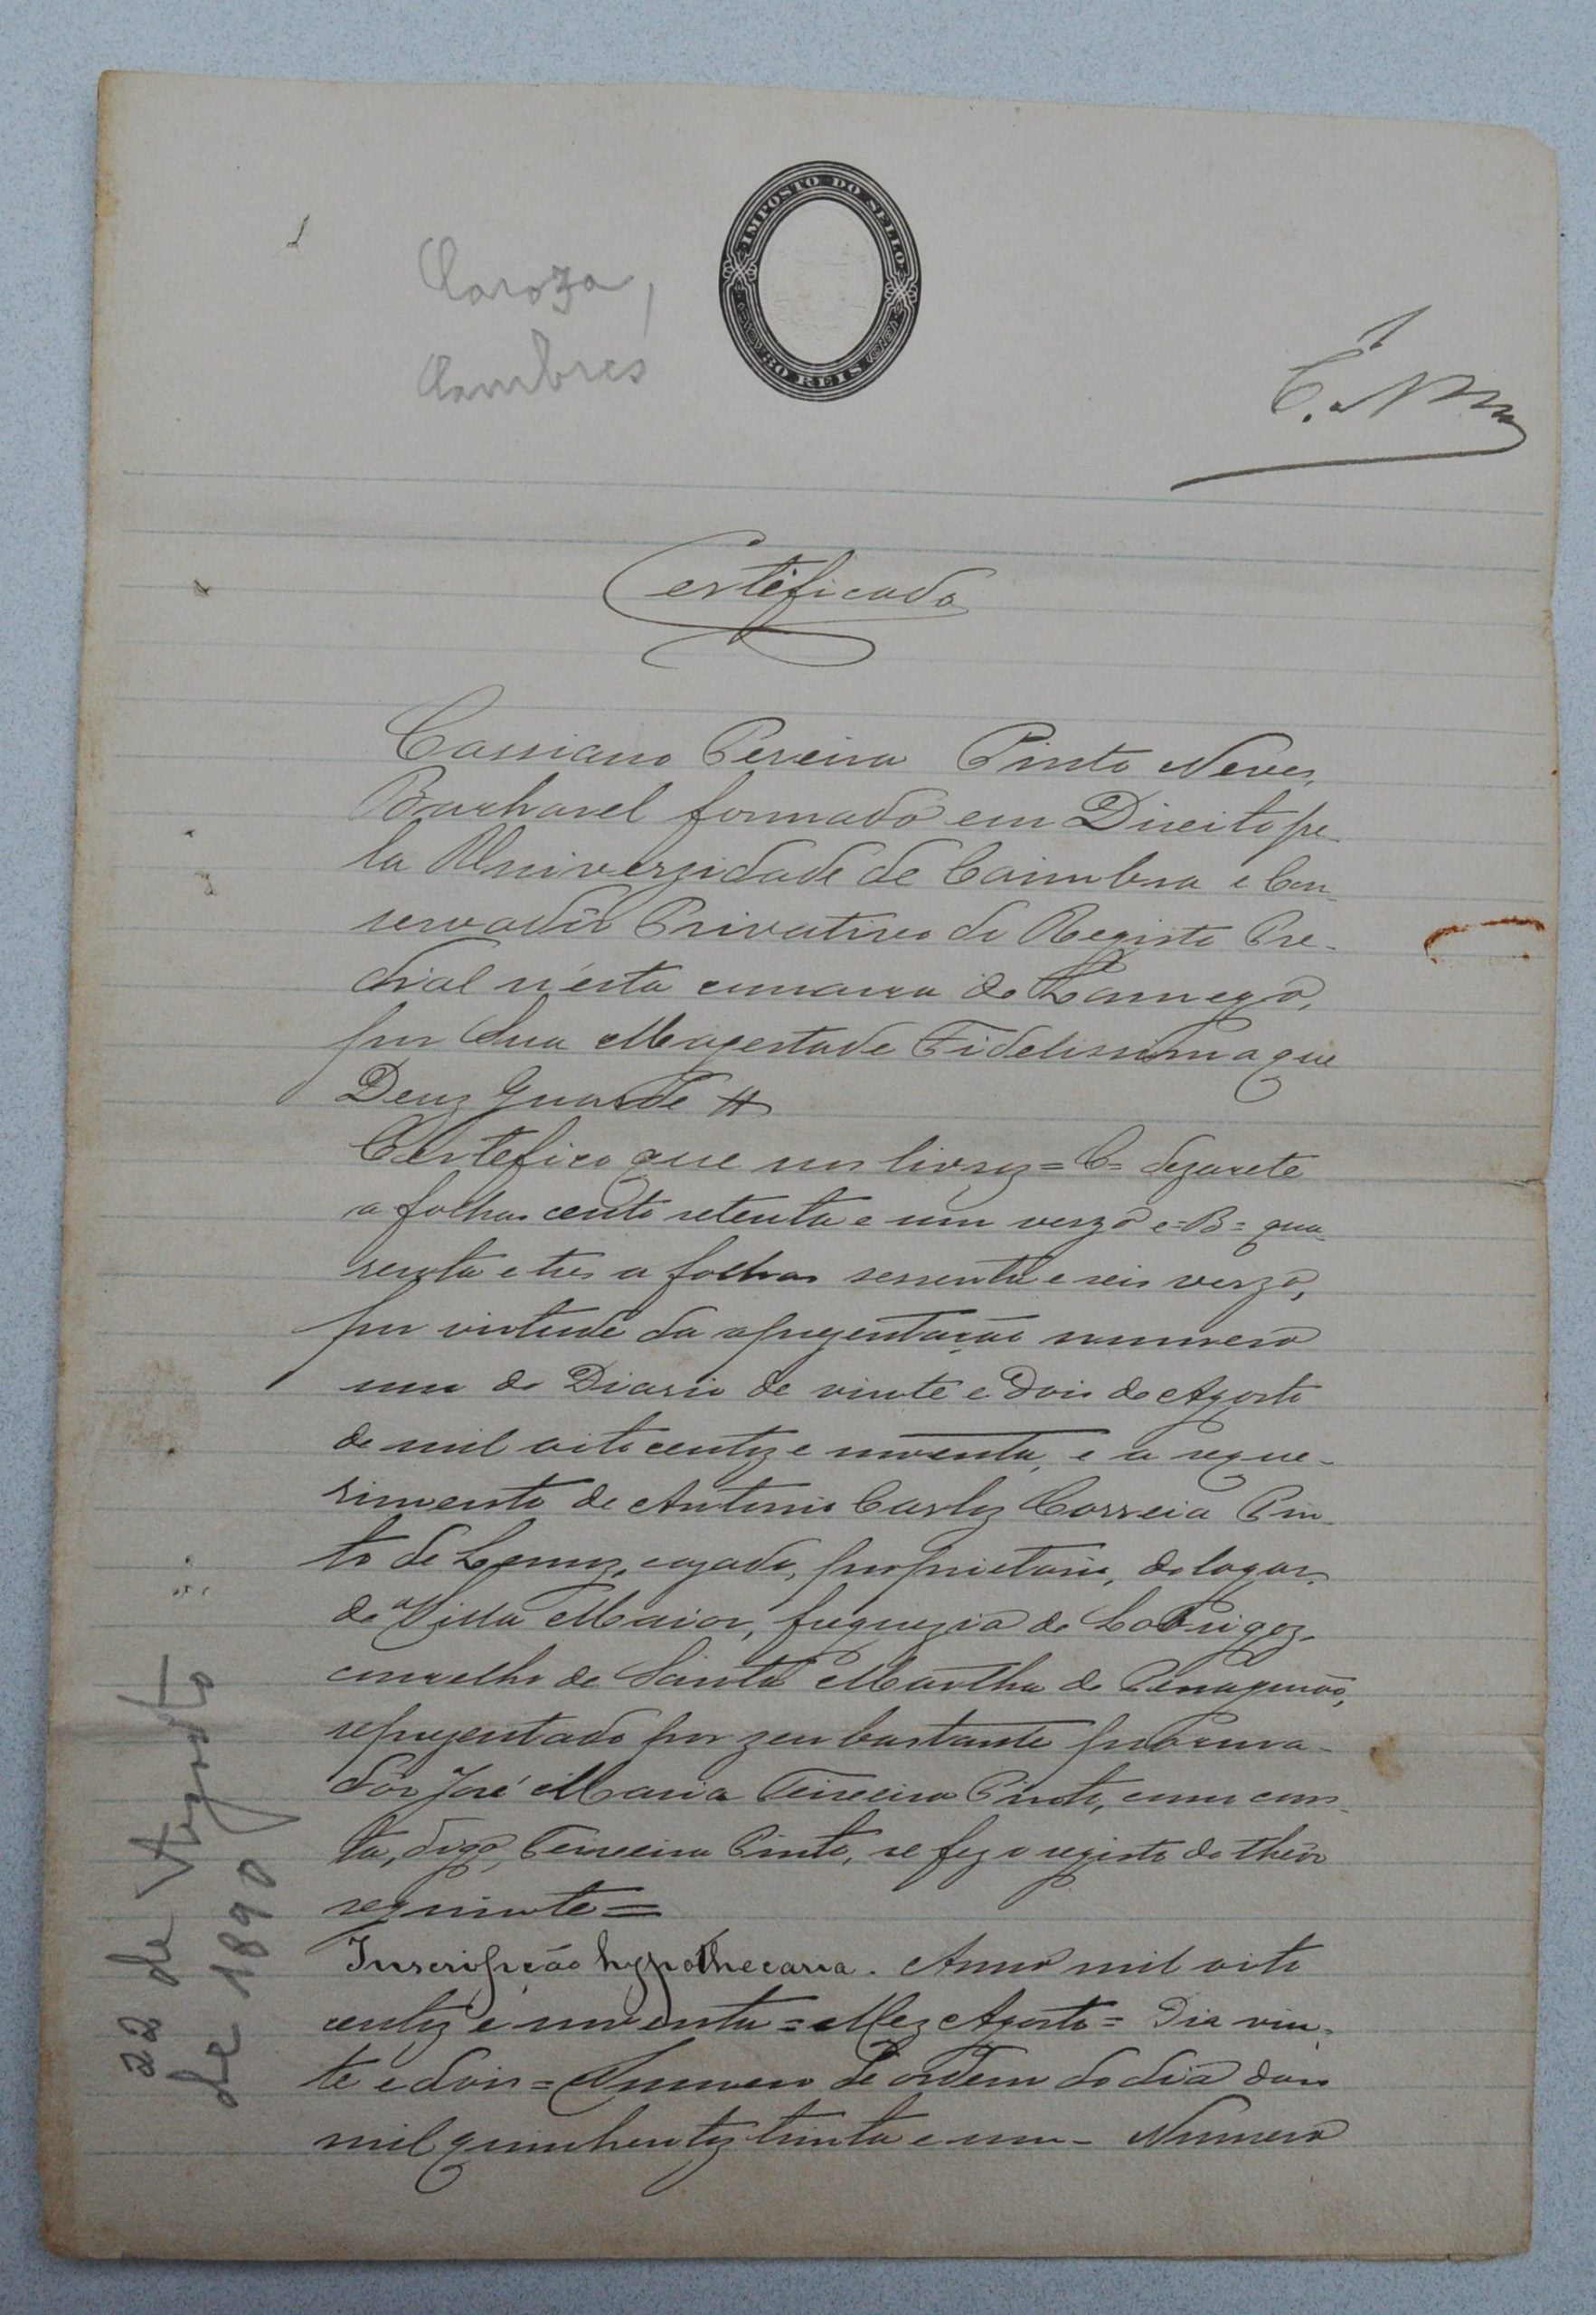 IMPOSTO DO SELLO
80 REIS
Cambres
Certeficado
Cassiano Pereira Pinto Neves,
Bacharel formado em Direito pe-
la Univerzidade de Coimbra e Con-
servador Privativo do Registo Pre-
dial n'esta comarca de Lamego,
por Sua Magestade Fidelissima que
Deuz Guarde
Certefico que nos livroz = C = dezasete
a folhas cento setenta e um verzo e = B = qua-
renta e tres a folhas sessenta e seis verzo,
por virtude da aprezentação numero
um do Diario de vinte e dois de Agosto
de mil oito centoz e noventa, e a reque-
rimento de Antonio Carloz Correia Pin-
to de Lemoz, cazado, proprietario, do logar
da Villa Maior, freguezia de Lobrigoz,
concelho de Santa Martha de Penaguião,
reprezentado por zeu bastante procura-
dor José Maria Teixeira Pinto, como cons-
ta, digo, Teixeira Pinto, se fez o registo do theor
seguinte =
Inscripção hypothecaria. Anno mil oito
centoz e noventa = Mez Agosto = Dia vin-
te e dois = Numero de ordem do dia dois
mil quinhentoz trinta e um - Numero
22 de Agosto
de 1890